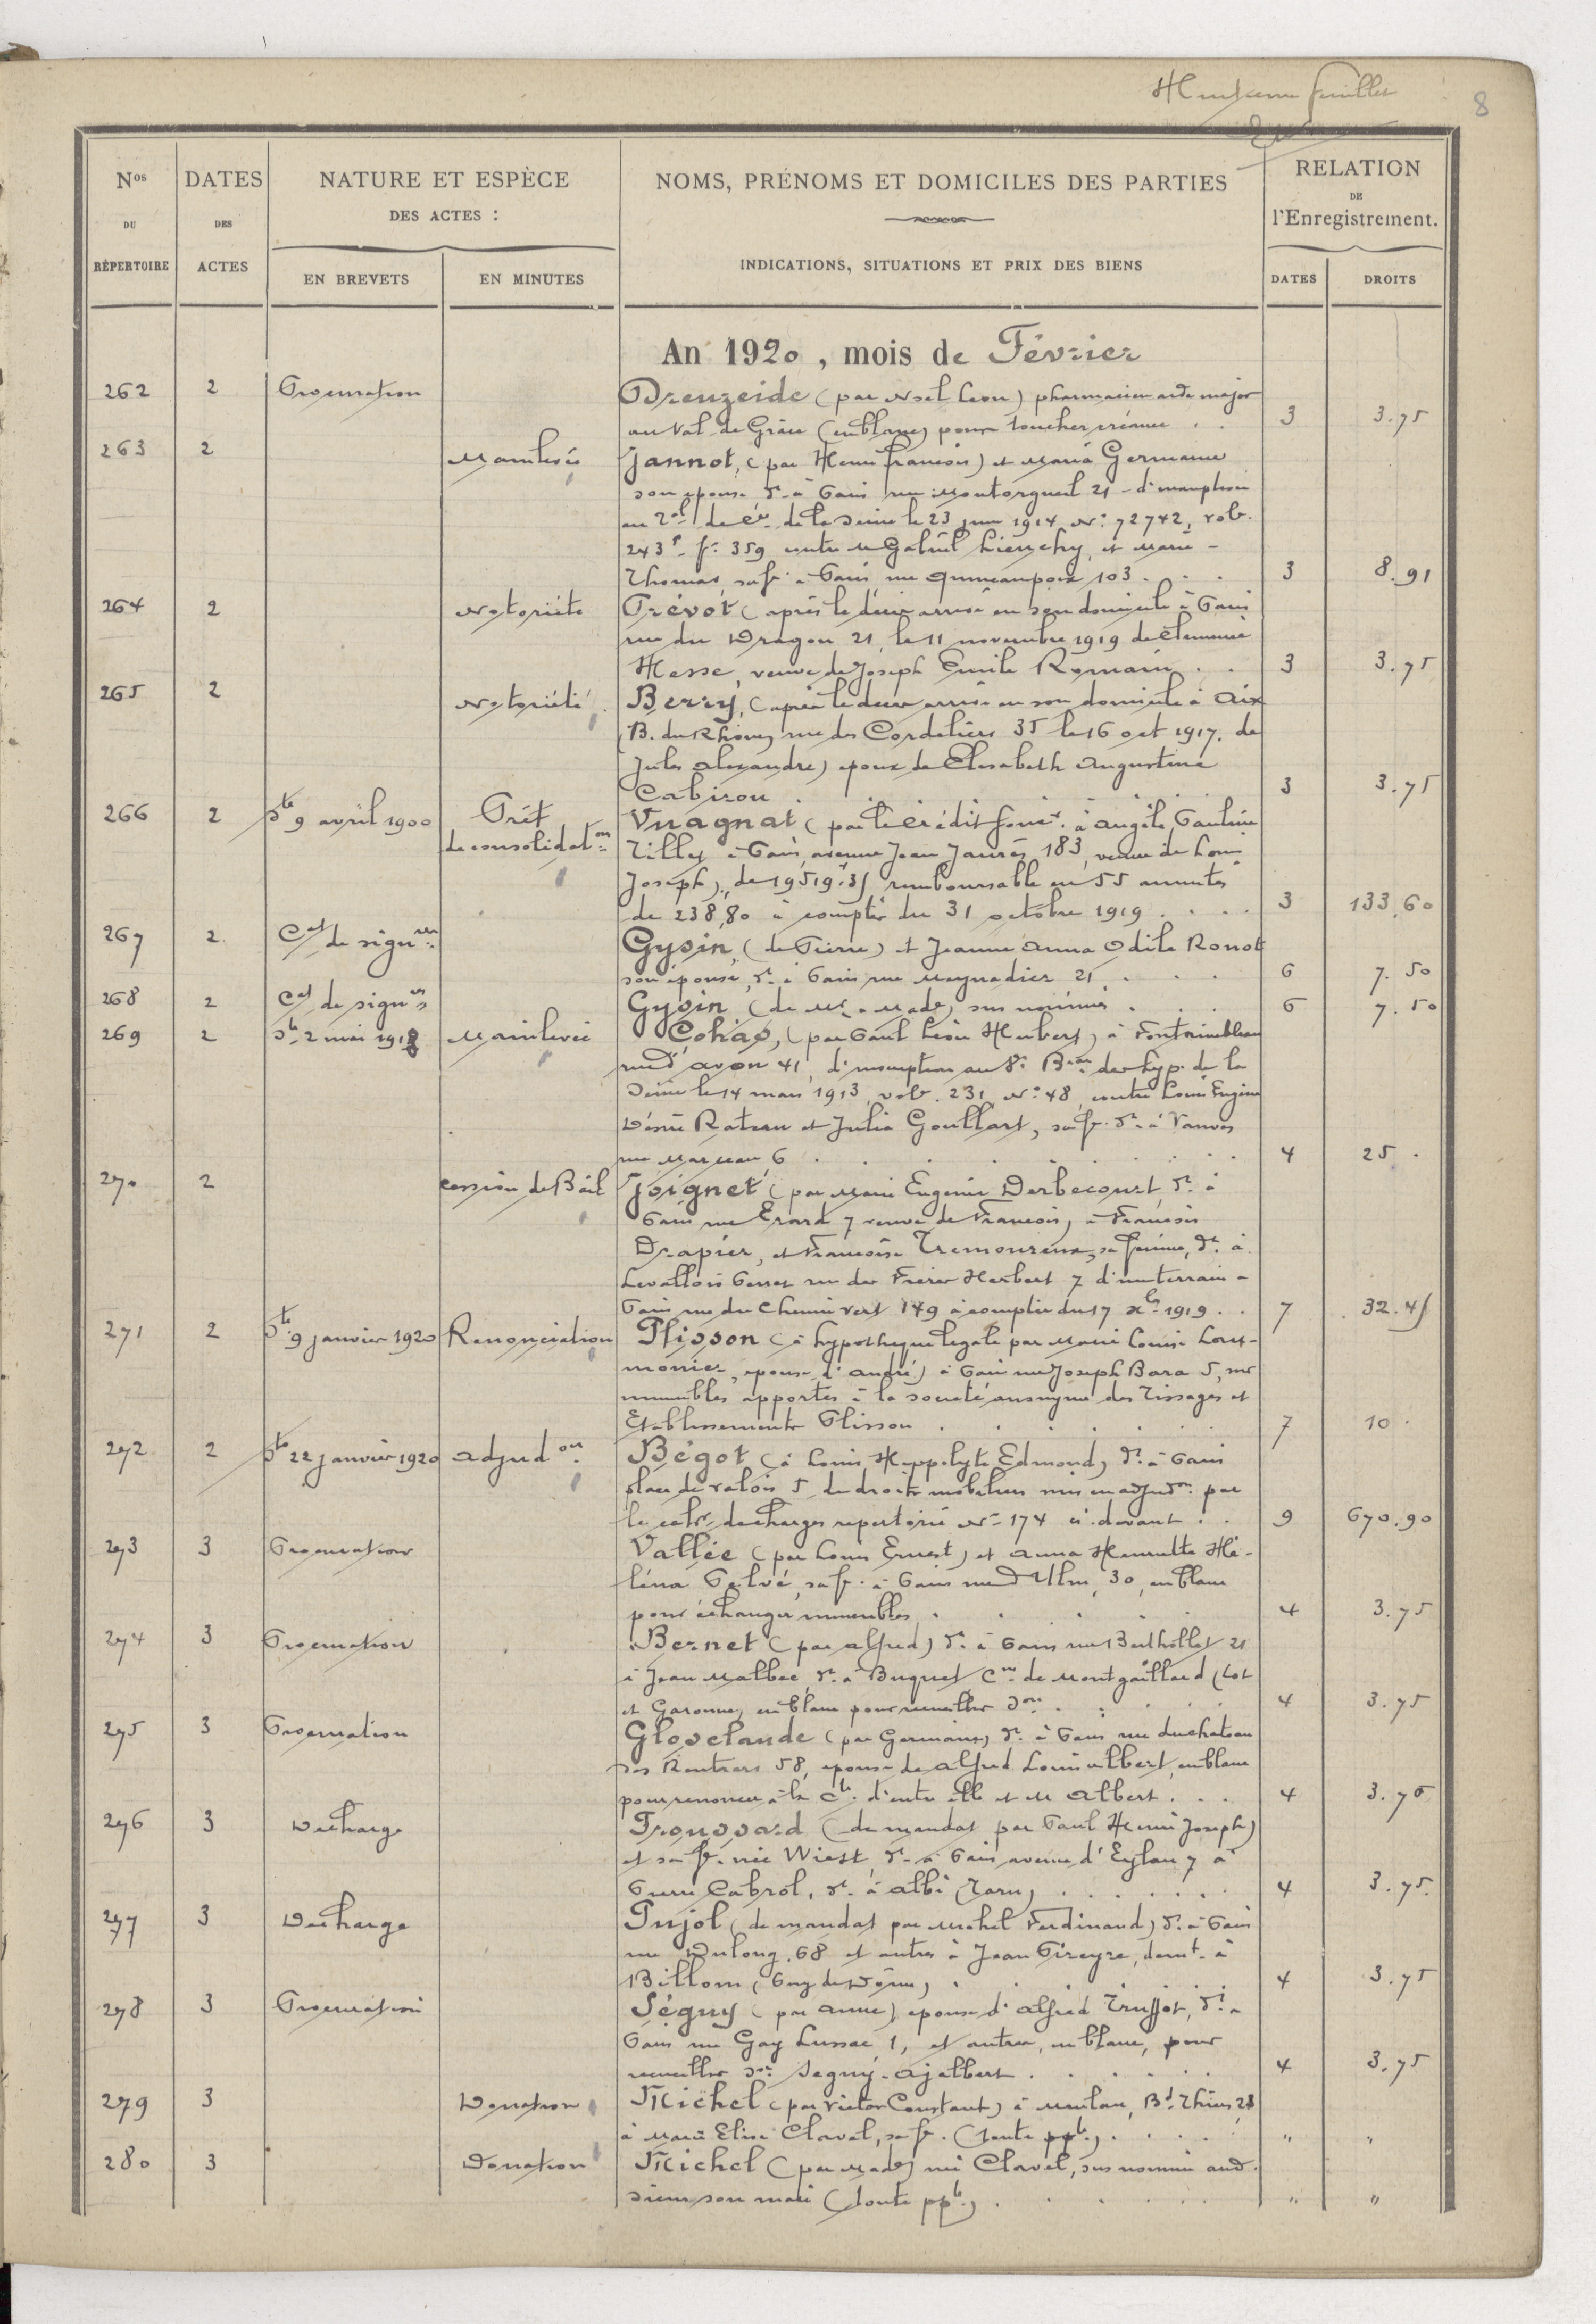 Huitième feuillet
8
Nos DU RÉPERTOIRE
DATES DES ACTES
NATURE ET ESPÈCE DES ACTES :
EN BREVETS
EN MINUTES
NOMS, PRÉNOMS ET DOMICILES DES PARTIES
INDICATIONS, SITUATIONS ET PRIX DES BIENS
RELATION DE l'Enregistrement.
DATES
DROITS
An 1920, mois de Février
262 2 Procuration Dreuzeide (par Noël Léon) pharmacien aide major
au Val de Grâce (en blanc) pour toucher créance . . 3 3.75
263 2 Mainlevée Jannot, (par Henri François) et Maria Germaine
son épouse, dt à Paris rue Montorgueil 21 - d'inscription
au 2ol de Cre de la Seine le 23 juin 1914 No 72742, vol.
243 fo 359 contre M Gabriel Lienchy et Marie
Thomas, sa fe à Paris, rue Quincampoix 103 . . . 3 8.91
264 2 Notoriété Prévot (après le décès arrivé en son domicile à Paris
rue du Dragon 21, le 11 novembre 1919 de Clémence
Hesse, veuve de Joseph Emile Romain . . 3 3.75
265 2 Notoriété Berry, (après le décès arrivé en son domicile à Aix
(B. du Rhône) rue des Cordeliers 35 le 16 oct 1917. de
Jules Alexandre) époux de Elisabeth Augustine
Cabirou . . . 3 3.75
266 2 Ste 9 avril 1900 Prêt de consolidaton Vuagnat (par le Crédit foncr. à Angèle Pauline
Tilly à Paris, avenue Jean Jaurès 183, veuve de Louis
Joseph), de 19519.35 remboursable en 55 annuités
de 238,80 à compter du 31 octobre 1919 . . . . 3 133.60
267 2 Cat de signres Gysin, (de Pierre) et Jeanne Anna Odile Ronot
son épouse, dt à Paris rue Meynadier 21 . . . 6 7.50
268 2 Cat de signres Gysin (de Mr & Made) sus nommés . . . 6 7.50
269 2 Ste 2 mai 1918 Mainlevée Cohas, (par Paul Léon Hubert) à Fontainebleau
rue d'Avon 41, d'inscription au 8e Bau des hyp. de la
Seine le 14 mars 1913, vol. 231 No 48, contre Louis Eugène
Désiré Rateau et Julia Goullart, sa fe dt à Vanves
rue Marceau 6 . . . 4 25 .
270 2 Cession de Bail Joignet (par Marie Eugénie Derbecourt, dt à
Paris rue Erard 7 veuve de François) à François
Drapier, et Françoise Tremoureux, sa femme, dt à
Levallois Perret rue des Frères Herbert 7 d'un terrain à
Paris rue du Chemin Vert 149 à compter du 17 xbre 1919 . . 7 32.45
271 2 Ste 9 janvier 1920 Renonciation Plisson (à hypothèque légale par Marie Louise
, épouse d'André) à Paris rue Joseph Bara 5, sur
immeubles apportés à la société anonyme des Tissages et
Etablissements Plisson . . . 7 10 .
272 2 Ste 22 janvier 1920 Adjudon Bégot (à Louis Hippolyte Edmond) dt à Paris
place de Valois 5, de droits mobiliers mis en adjudon par
le cahr. de charges répertorié No 174 ci-devant . . 9 670.90
273 3 Procuration Vallée (par Louis Ernest) et Anna Henriette Hé-
léna Pelvé, sa fe à Paris rue d'Ulm, 30, en blanc
pour échanger immeubles . . . 4 3.75
274 3 Procuration Bernet (par Alfred) dt à Paris rue Berthollet 21
à Jean Malbec, dt à Buquet Cne de Montgaillard (Lot
et Garonne) en blanc pour recueillir son . . . 4 3.75
275 3 Procuration Gloxelande (par Germaine) dt à Paris rue du Château
des Rentiers 58, épouse de Alfred Louis Albert, en blanc
pour renoncer à la Cté d'entre elle et M Albert . . . 4 3.75
276 3 Décharge Troussard (de mandat par Paul Henri Joseph)
et sa fe née Wiest, dt à Paris avenue d'Eylau 7 à
Pierre Cabrol, dt à Albi (Tarn) . . . 4 3.75.
277 3 Décharge Pujol (de mandat par Michel Ferdinand) dt à Paris
rue Dulong. 68 et autres à Jean Pireyre, demt à
Billom (Puy de Dôme) . . . 4 3.75
278 3 Procuration Séguy (par Anne) épouse d'Alfred Truffot, dt à
Paris rue Gay Lussac 1, et autres, en blanc, pour
recueillir son Seguy-Ajalbert . . . 4 3.75
279 3 Donation Michel (par Victor Constant) à Meulan, Bd Thiers 28
à Marie Elise Claval, sa fe. (toute ppté) . . . " "
280 3 Donation Michel (par Made) née Claval, sus nommée aud.
sieur son mari (toute ppté) . . . " "